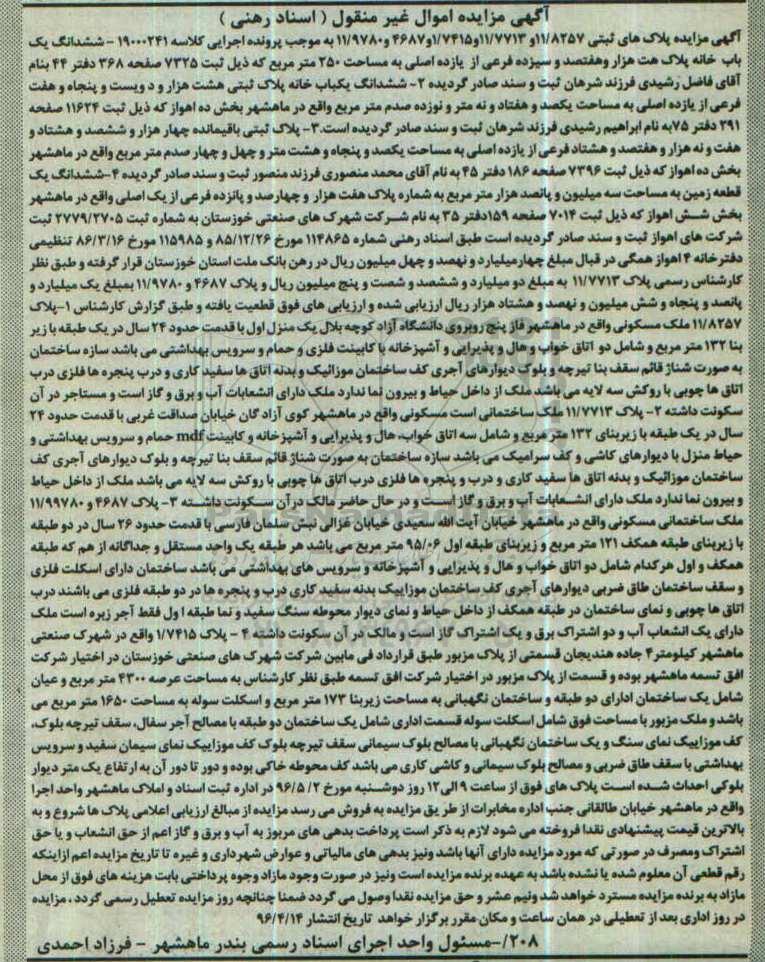 آگهی مزایده اموال غیر منقول ( اسناد رهنی )
آگهی مزایده پلاک های ثبتی ۱۱/۸۲۵۷و ۱۱/۷۷۱۳و۱/۷۴۱۵و۴۶۸۷ و۱۱/۹۷۸۰ به موجب پرونده اجرایی کلاسه ۱۹۰۰۰۲۴۱ - ششدانگ یک
باب خانه پلاک هت هزار وهفتصد و سیزده فرعی از یازده اصلی به مساحت ۲۵۰ متر مربع که ذیل ثبت ۷۳۲۵ صفحه ۳۶۸ دفتر ۴۴ بنام
آقای فاضل رشیدی فرزند شرهان ثبت و سند صادر گردیده ۲- ششدانگ یکباب خانه پلاک ثبتی هشت هزار و دویست و پنجاه و هفت
فرعی از یازده اصلی به مساحت یکصد و هفتاد و نه متر و نوزده صدم متر مربع واقع در ماهشهر بخش ده اهواز که ذیل ثبت ۱۱۶۲۴ صفحه
۲۹۱ دفتر ۷۵به نام ابراهیم رشیدی فرزند شرهان ثبت و سند صادر گردیده است.۳- پلاک ثبتی باقیمانده چهار هزار و ششصد و هشتاد و
هفت و نه هزار و هفتصد و هشتاد فرعی از یازده اصلی به مساحت یکصد و پنجاه و هشت متر و چهل و چهار صدم متر مربع واقع در ماهشهر
بخش ده اهواز که ذیل ثبت ۷۳۹۶ صفحه ۱۸۶ دفتر ۴۵ به نام آقای محمد منصوری فرزند منصور ثبت و سند صادر گردیده ۴-ششدانگ یک
قطعه زمین به مساحت سه میلیون و پانصد هزار متر مربع به شماره پلاک هفت هزار و چهارصد و پانزده فرعی از یک اصلی واقع در ماهشهر
بخش شش اهواز که ذیل ثبت ۷۰۱۴ صفحه ۱۵۹دفتر ۳۵ به نام شرکت شهرک های صنعتی خوزستان به شماره ثبت ۲۷۷۹/۲۷۰۵ ثبت
شرکت های اهواز ثبت و سند صادر گردیده است طبق اسناد رهنی شماره ۱۱۴۸۶۵ مورخ ۸۵/۱۲/۲۶ و ۱۱۵۹۸۵ مورخ ۸۶/۳/۱۶ تنظیمی
دفترخانه ۴ اهواز همگی در قبال مبلغ چهارمیلیارد و نهصد و چهل میلیون ریال در رهن بانک ملت استان خوزستان قرار گرفته و طبق نظر
کارشناس رسمی پلاک ۱۱/۷۷۱۳ به مبلغ دو میلیارد و ششصد و شصت و پنج میلیون ریال و پلاک ۴۶۸۷ و ۱۱/۹۷۸۰ بمبلغ یک میلیارد و
پانصد و پنجاه و شش میلیون و نهصد و هشتاد هزار ریال ارزیابی شده و ارزیابی های فوق قطعیت یافته و طبق گزارش کارشناس ۱-پلاک
۱۱/۸۲۵۷ ملک مسکونی واقع در ماهشهر فاز پنج روبروی دانشگاه آزاد کوچه بلال یک منزل اول با قدمت حدود ۲۴ سال در یک طبقه با زیر
بنا ۱۳۲ متر مربع و شامل دو اتاق خواب و هال و پذیرایی و آشپزخانه با کابینت فلزی و حمام و سرویس بهداشتی می باشد سازه ساختمان
به صورت شناژ قائم سقف بنا تیرچه و بلوک دیوارهای آجری کف ساختمان موزائیک و بدنه اتاق ها سفید کاری و درب پنجره ها فلزی درب
اتاق ها چوبی با روکش سه لایه می باشد ملک از داخل حیاط و بیرون نما ندارد ملک دارای انشعابات آب و برق و گاز است و مستاجر در آن
سکونت داشته ۲- پلاک ۱۱/۷۷۱۳ ملک ساختمانی است مسکونی واقع در ماهشهر کوی آزاد گان خیابان صداقت غربی با قدمت حدود ۲۴
سال در یک طبقه با زیربنای ۱۳۲ متر مربع و شامل سه اتاق خواب، هال و پذیرایی و آشپزخانه و کابینت mdf حمام و سرویس بهداشتی و
حیاط منزل با دیوارهای کاشی و کف سرامیک می باشد سازه ساختمان به صورت شناژ قائم سقف بنا تیرچه و بلوک دیوارهای آجری کف
ساختمان موزائیک و بدنه اتاق ها سفید کاری و درب و پنجره ها فلزی درب اتاق ها چوبی با روکش سه لایه می باشد ملک از داخل حیاط
و بیرون نما ندارد ملک دارای انشعابات آب و برق و گاز است و در حال حاضر مالک درآن سکونت داشته ۳- پلاک ۴۶۸۷ و ۱۱/۹۹۷۸۰
ملک ساختمانی مسکونی واقع در ماهشهر خیابان آیت الله سعیدی خیابان غزالی نبش سلمان فارسی با قدمت حدود ۲۶ سال در دو طبقه
با زیربنای طبقه همکف ۱۲۱ متر مربع و زیربنای طبقه اول ۹۵/۰۶ متر مربع می باشد هر طبقه یک واحد مستقل و جداگانه از هم که طبقه
همکف و اول هرکدام شامل دو اتاق خواب و هال و پذیرایی و آشپزخانه و سرویس های بهداشتی می باشد ساختمان دارای اسکلت فلزی
و سقف ساختمان طاق ضربی دیوارهای آجری کف ساختمان موزاییک بدنه سفید کاری درب و پنجره ها در دو طبقه فلزی می باشند درب
اتاق ها چوبی و نمای ساختمان در طبقه همکف از داخل حیاط و نمای دیوار محوطه سنگ سفید و نما طبقه اول فقط آجر زبره است ملک
دارای یک انشعاب آب و دو اشتراک برق و یک اشتراک گاز است و مالک در آن سکونت داشته ۴ - پلاک ۱/۷۴۱۵ واقع در شهرک صنعتی
ماهشهر کیلومتر۴ جاده هندیجان قسمتی از پلاک مزبور طبق قرارداد فی مابین شرکت شهرک های صنعتی خوزستان در اختیار شرکت
افق تسمه ماهشهر بوده و قسمت از پلاک مزبور در اختیار شرکت افق تسمه طبق نظر کارشناس به مساحت عرصه ۴۳۰۰ متر مربع و عیان
شامل یک ساختمان ادارای دو طبقه و ساختمان نگهبانی به مساحت زیربنا ۱۷۳ متر مربع و اسکلت سوله به مساحت ۱۶۵۰ متر مربع می
باشد و ملک مزبور با مساحت فوق شامل اسکلت سوله قسمت اداری شامل یک ساختمان دو طبقه با مصالح آجر سفال، سقف تیرچه بلوک،
کف موزاییک نمای سنگ و یک ساختمان نگهبانی با مصالح بلوک سیمانی سقف تیرچه بلوک کف موزاییک نمای سیمان سفید و سرویس
بهداشتی با سقف طاق ضربی و مصالح بلوک سیمانی و کاشی کاری می باشد کف محوطه خاکی بوده و دور تا دور آن به ارتفاع یک متر دیوار
بلوکی احداث شده است پلاک های فوق از ساعت ۹ الی۱۲ روز دوشنبه مورخ ۹۶/۵/۲ در اداره ثبت اسناد و املاک ماهشهر واحد اجرا
واقع در ماهشهر خیابان طالقانی جنب اداره مخابرات از طریق مزایده به فروش می رسد مزایده از مبالغ ارزیابی اعلامی پلاک ها شروع و به
بالاترین قیمت پیشنهادی نقدا فروخته می شود لازم به ذکر است پرداخت بدهی های مربوز به آب و برق و گاز اعم از حق انشعاب و یا حق
اشتراک ومصرف در صورتی که مورد مزایده دارای آنها باشد ونیز بدهی های مالیاتی و عوارض شهرداری و غیره تا تاریخ مزایده اعم ازاینکه
رقم قطعی آن معلوم شده یا نشده باشد به عهده برنده مزایده است ونیز در صورت وجود مازاد وجوه پرداختی بابت هزینه های فوق از محل
مازاد به برنده مزایده مسترد خواهد شد ونیم عشر و حق مزایده نقدا وصول می گردد ضمنا چنانچه روز مزایده تعطیل رسمی گردد ، مزایده
در روز اداری بعد از تعطیلی در همان ساعت و مکان مقرر برگزار خواهد تاریخ انتشار ۹۶/۴/۱۴
۲۰۸/-مسئول واحد اجرای اسناد رسمی بندر ماهشهر - فرزاد احمدی